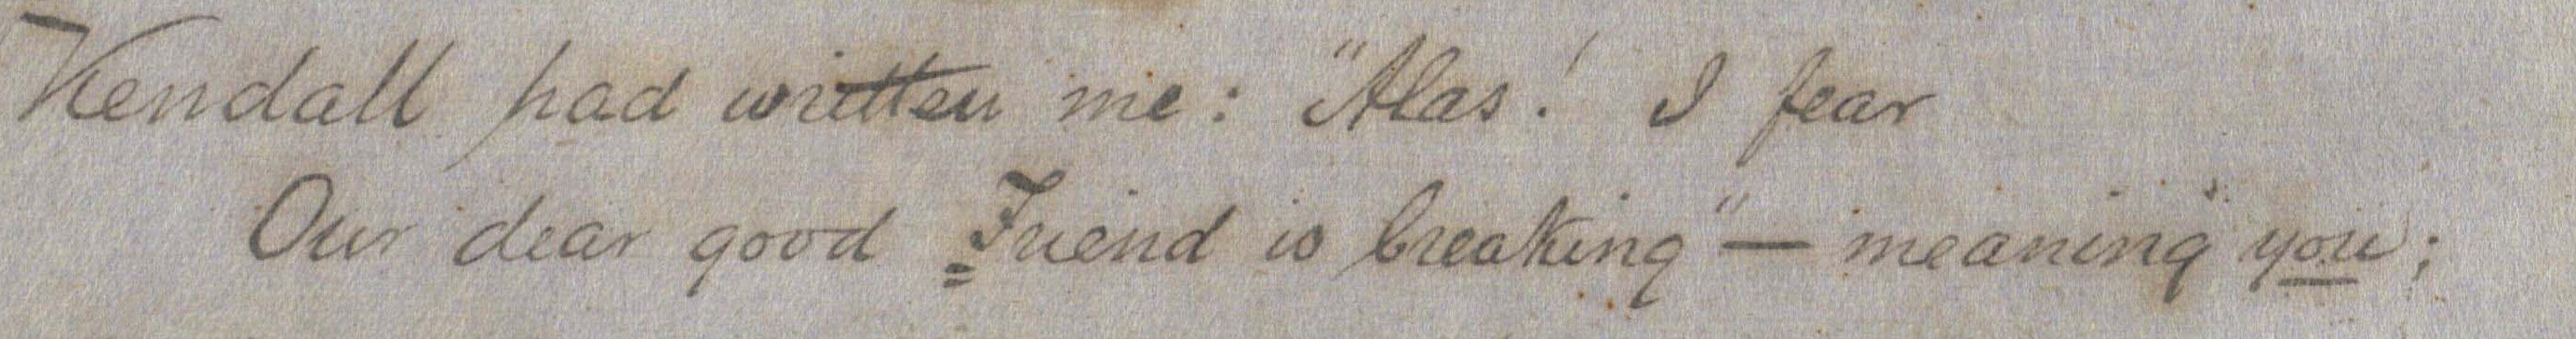 Kendall had written me: "Alas! I fear
Our dear good Friend is breaking" — meaning you;